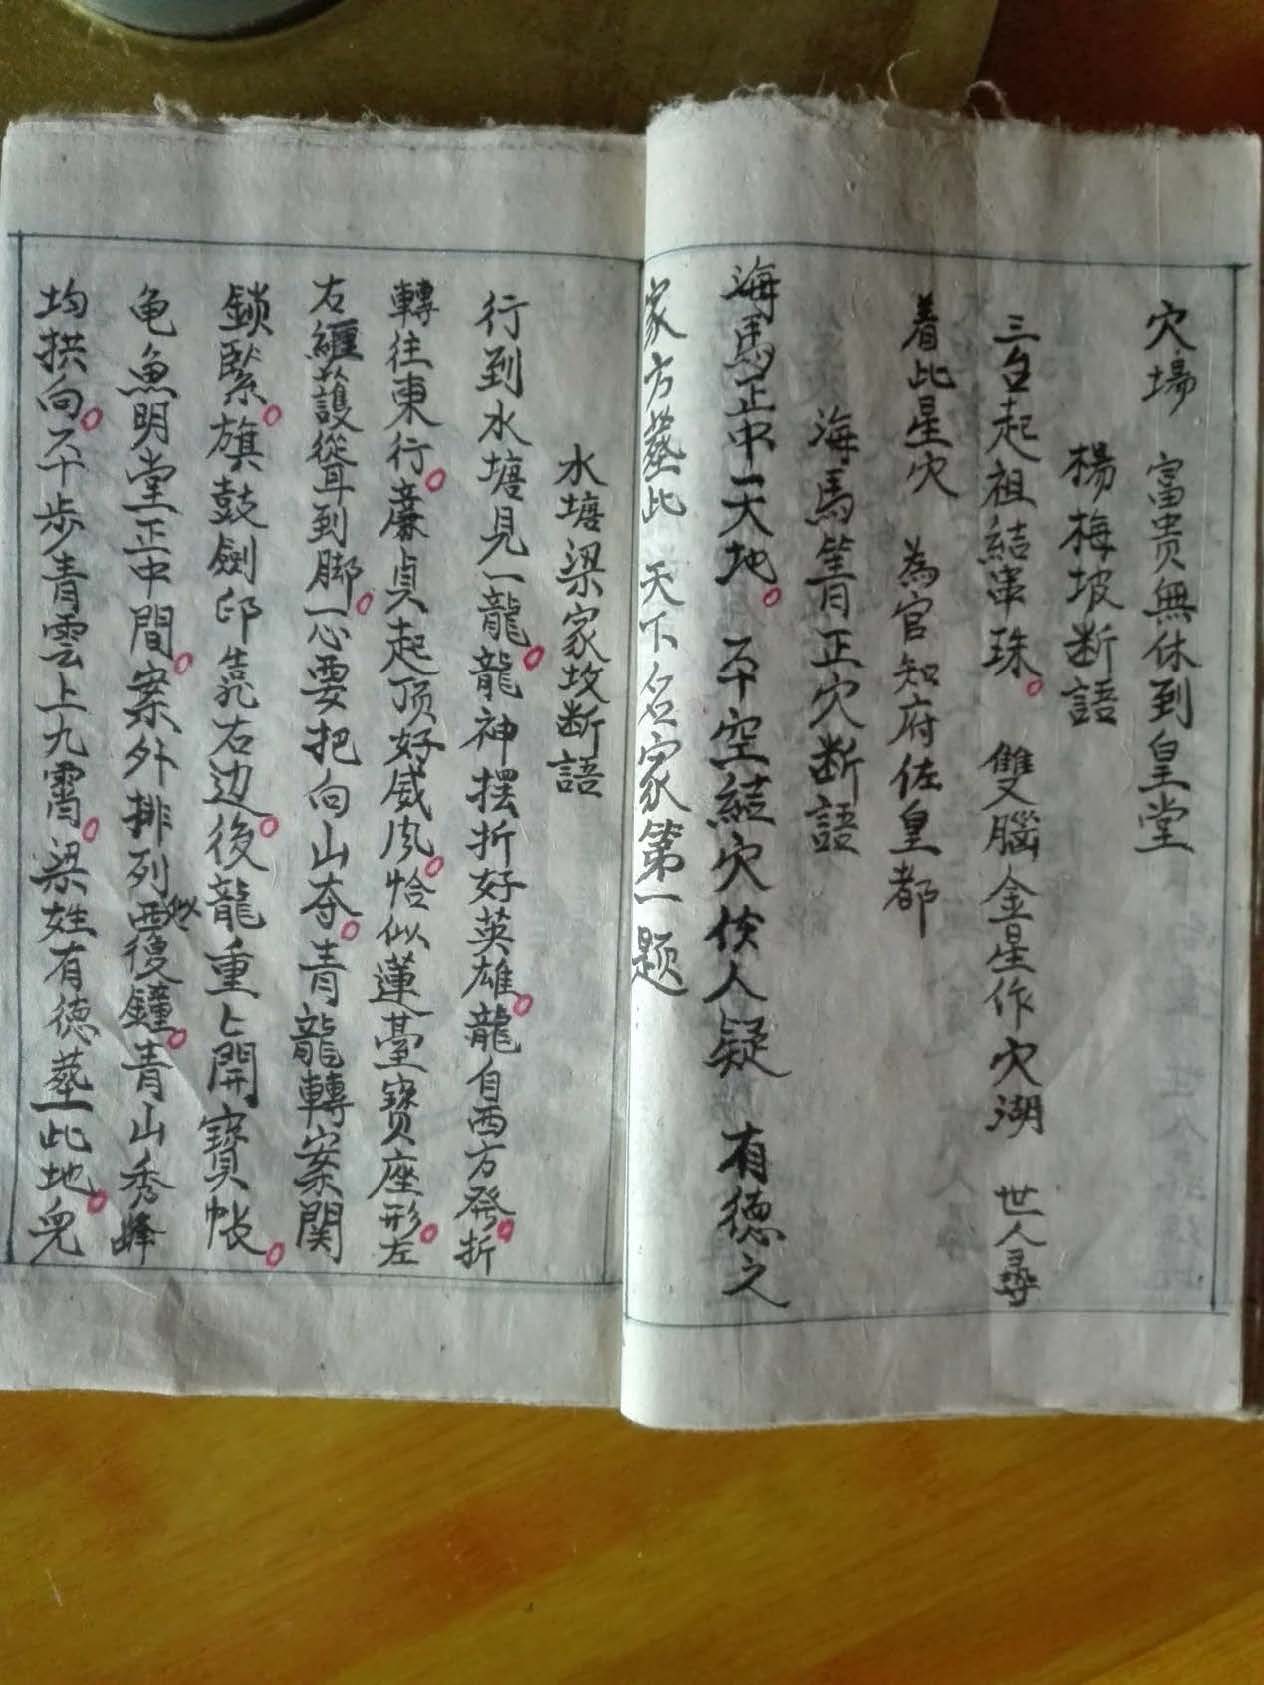 穴場　富贵無休到皇堂
楊梅坡断語
三台起祖結串珠。　雙腦金星作穴湖　世人尋
着此星穴　為官知府佐皇都
海馬笴正穴断語
海馬正中一天地。　平空結穴俟人疑　有德之
家方塟此　天下名家第一题
水塘梁家坟断語
行到水塘見一龍。龍神摆折好英雄。龍自西方發。折
轉往東行。廉貞起顶好威风。恰似蓮臺寶座形。左
右纏護從耳到脚。一心要把向山夺。青龍轉案関
鎖緊。旗鼓劍印靠右边。後龍重上開寶帐。
龟魚明堂正中間。案外排列似覆鐘。青山秀峰
均拱向。平步青雲上九霄。梁姓有德塟此地。兒